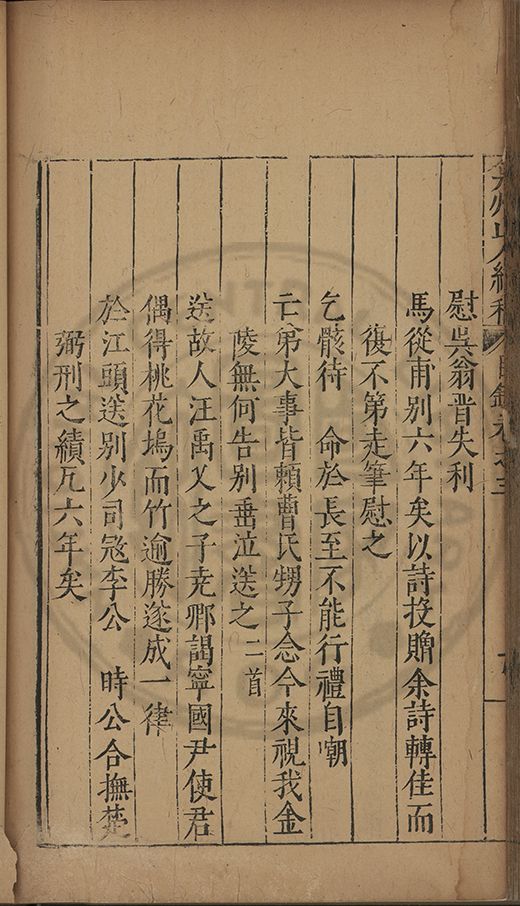 弇州山人續稿 目錄卷之三
慰吳翁晉失利
馬從甫別六年矣以詩投贈余詩轉佳而
復不第走筆慰之
乞骸待 命於長至不能行禮自嘲
亡弟大事皆賴曹氏甥子念今來視我金
陵無何告別垂泣送之二首
送故人汪禹乂之子尭卿謁寧國尹使君
偶得桃花塢而竹逾勝遂成一律
於江頭送別少司寇李公 時公合撫楚
弼刑之績凡六年矣